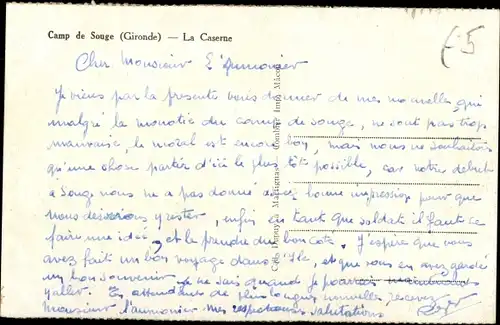 Camp de Souge (Gironde) — La Caserne
Cher Monsieur L'Aumonier
Je viens par la presente vous donner de mes nouvelles, qui
malgré la monotie du camp de Souge, ne sont pas trop
mauvaise, le moral est encore bon, mais nous ne souhaitons
qu'une chose partir d'ici le plus tôt possible, car notre debut
a Souge nous ne a pas donné assez bonne impression pour que
nous desirions y rester, enfin en tant que soldat il faut ce
faire une idée, et le prendre du bon coté. J'espère que vous
avez fait un bon voyage dans l'Ile, et que vous en avez gardé
un bon souvenir je ne sais quand je pourais
y aller. En attendant de plus longues nouvelles recevez
Monsieur l'aumonier mes respectueuses salutations